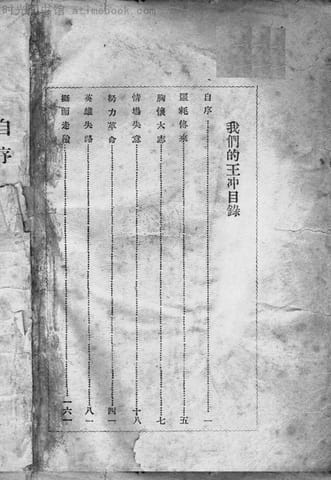 atimebook.com
我們的王冲目錄
自序……一
噩耗傳來……五
胸懷大志……七
情場失意……十八
努力革命……四一
英雄失路……八一
鋌而走險……一六一
自序